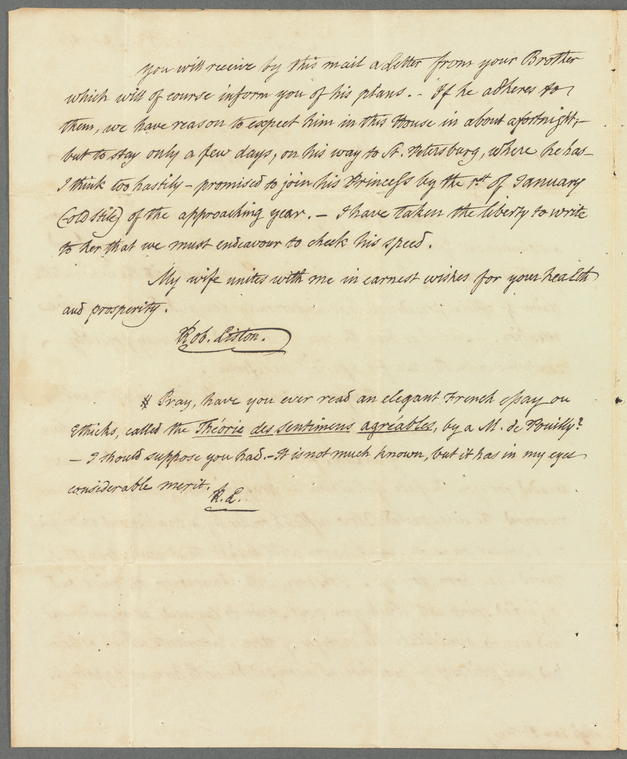 you will receive by this mail a Letter from your Brother
which will of course inform you of his plans. – If he adheres to
them, we have reason to expect him in this House in about a fortnight,
but to stay only a few days, on his way to St. Petersburg, where he has –
I think too hastily – promised to join his Princess by the 1st of January
(old stile) of the approaching year. – I have taken the liberty to write
to her that we must endeavour to check his speed.
My wife unites with me in earnest wishes for your health
and prosperity.
Rob. Liston.
# Pray, have you ever read an elegant French essay on
Ethicks, called the Théorie des sentimens agreables, by a M. de Pouilly?
– I should suppose you had. – It is not much known, but it has in my eyes
considerable merit.
R. L.